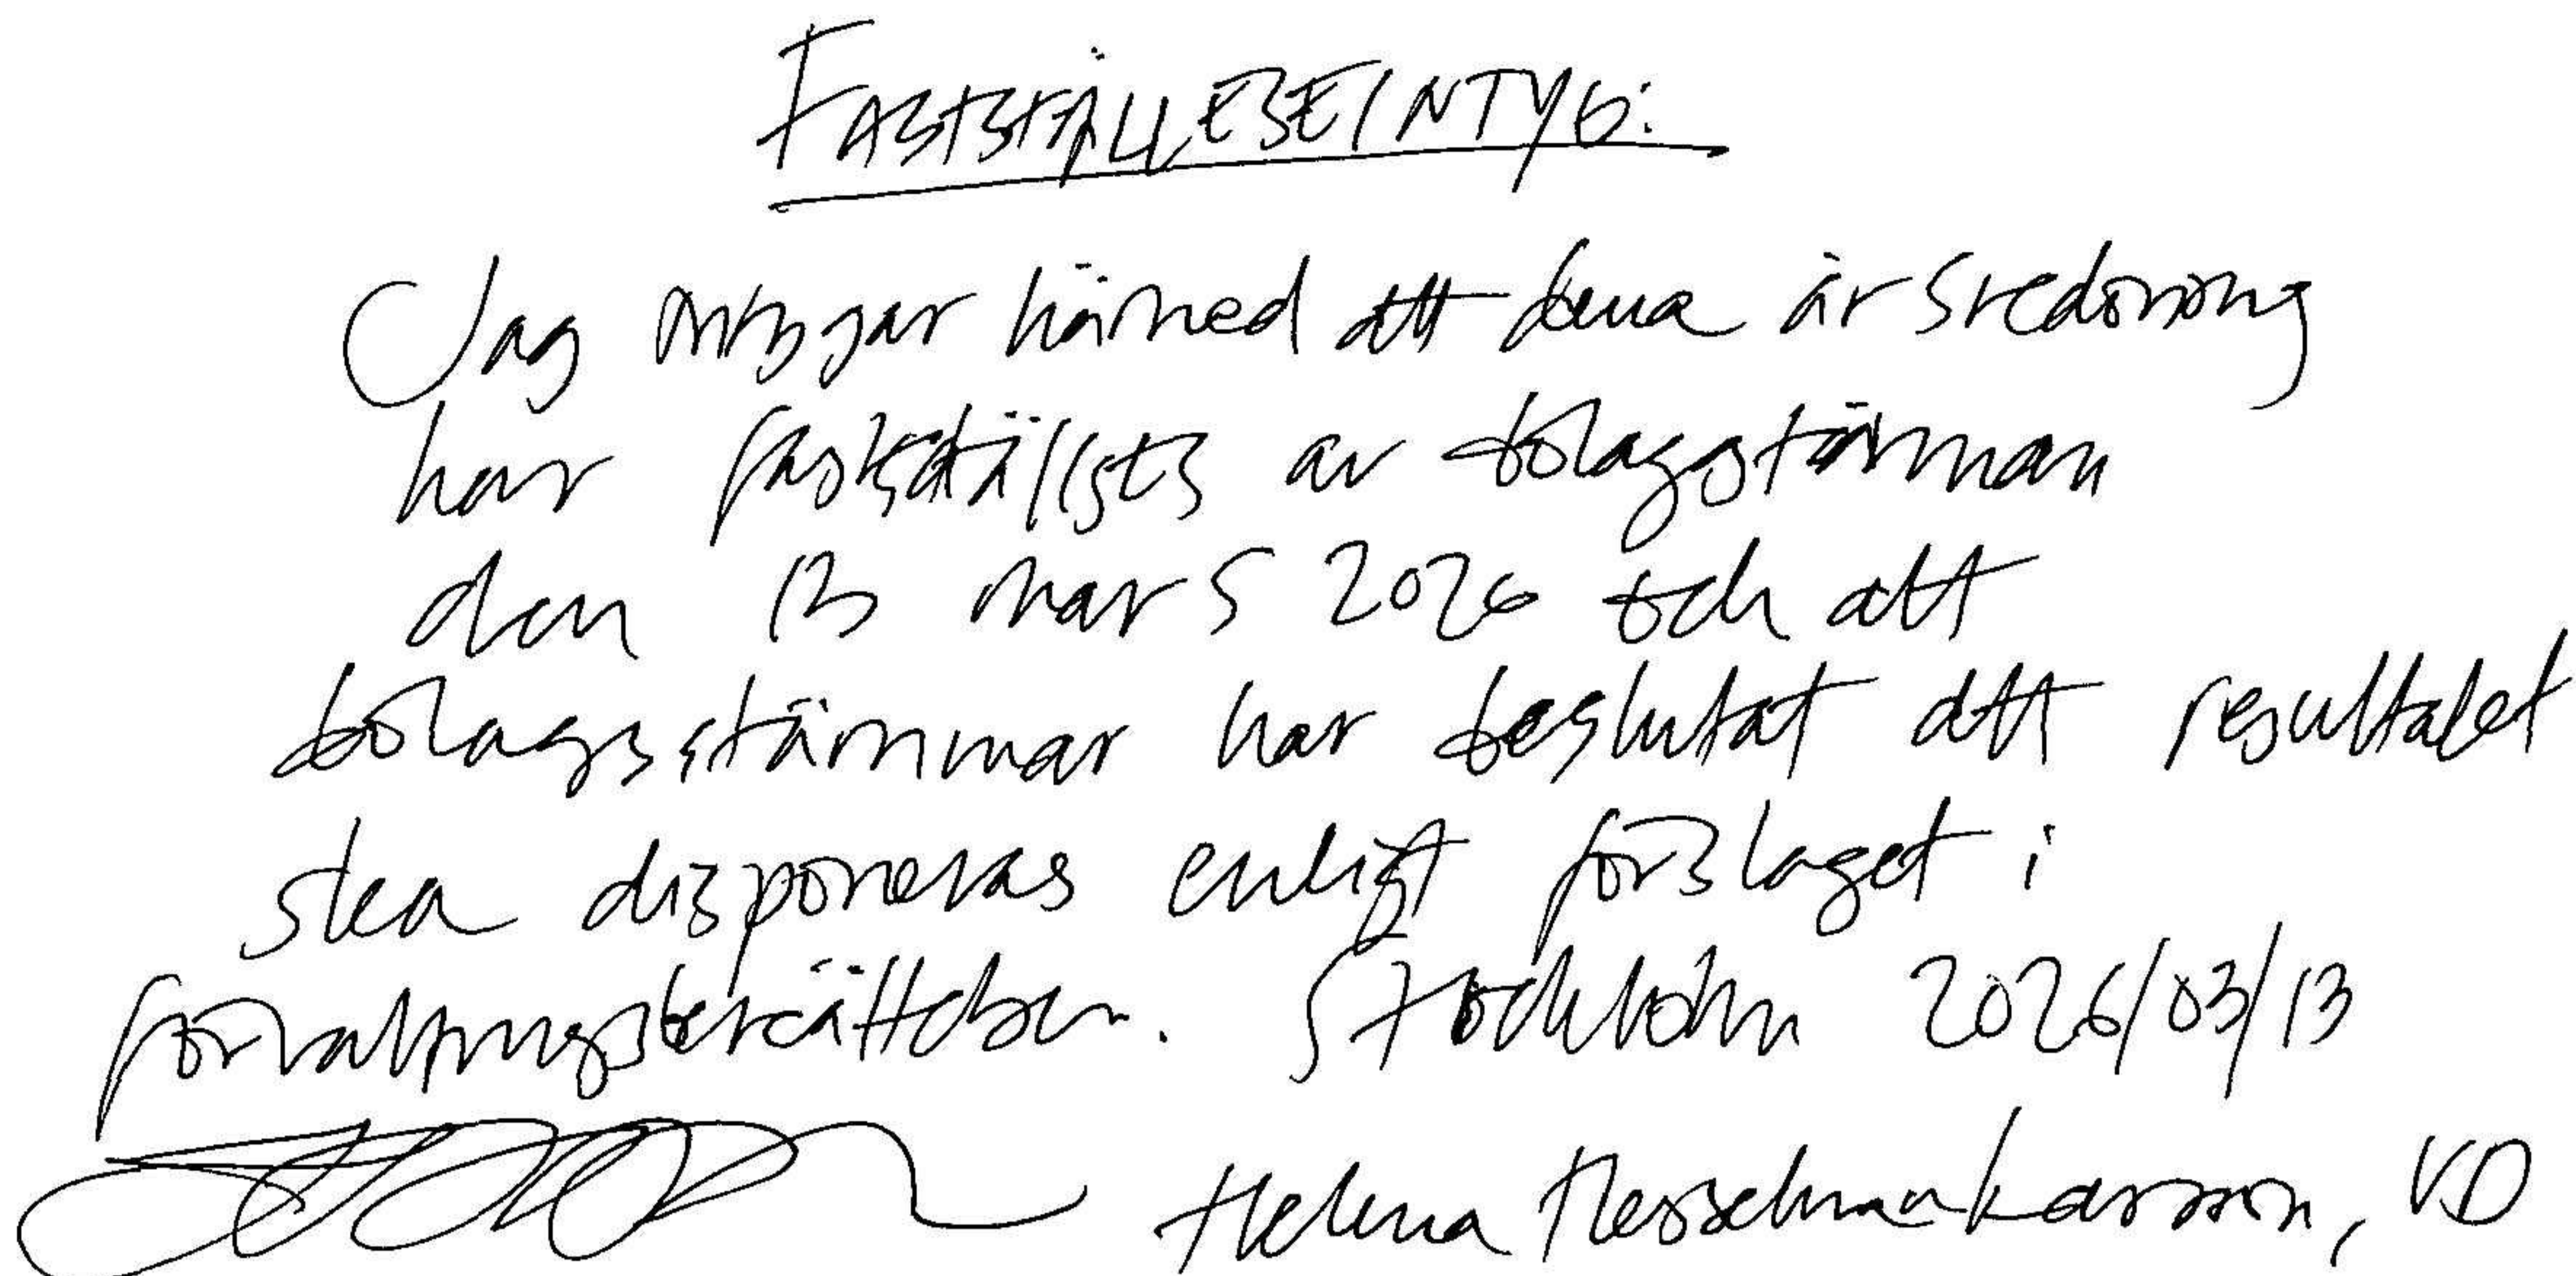 FASTSTÄLLESEINTYG:
Jag intygar härmed att denna årsredovisning
har fastställsts av bolagsstämman
den 13 mars 2026 och att
bolagsstämman har beslutat att resultatet
ska disponeras enligt förslaget i
förvaltningsberättelsen. Stockholm 2026/03/13
Helena, VD